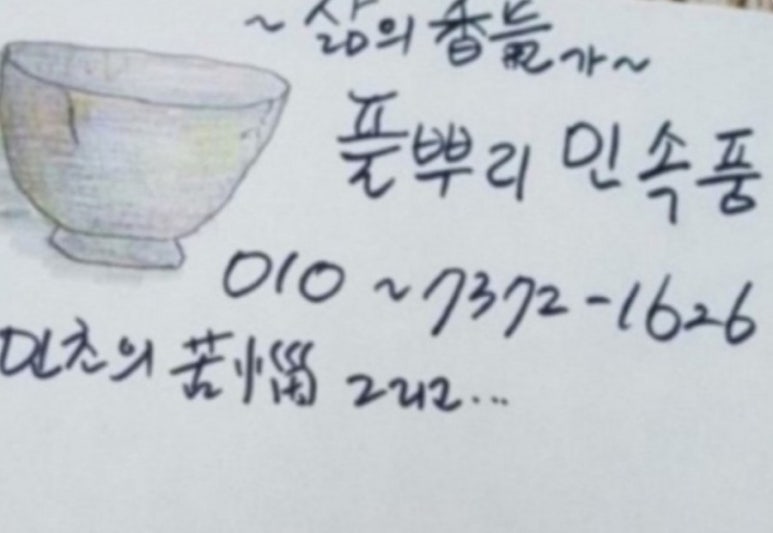 ~ 삶의 香氣가 ~
풀뿌리 민속품
010 ~ 7372-1626
민초의 苦惱 그리고...